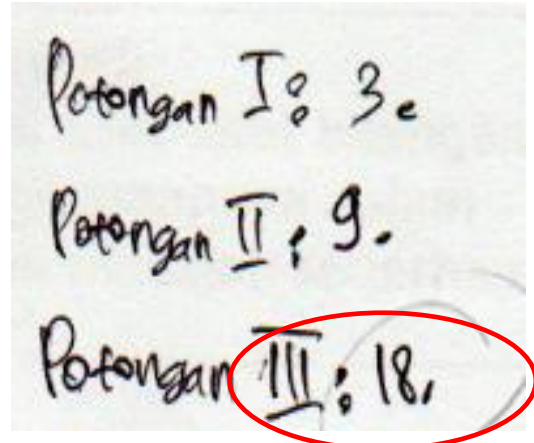 Potongan I: 3.
Potongan II: 9.
Potongan III: 18.